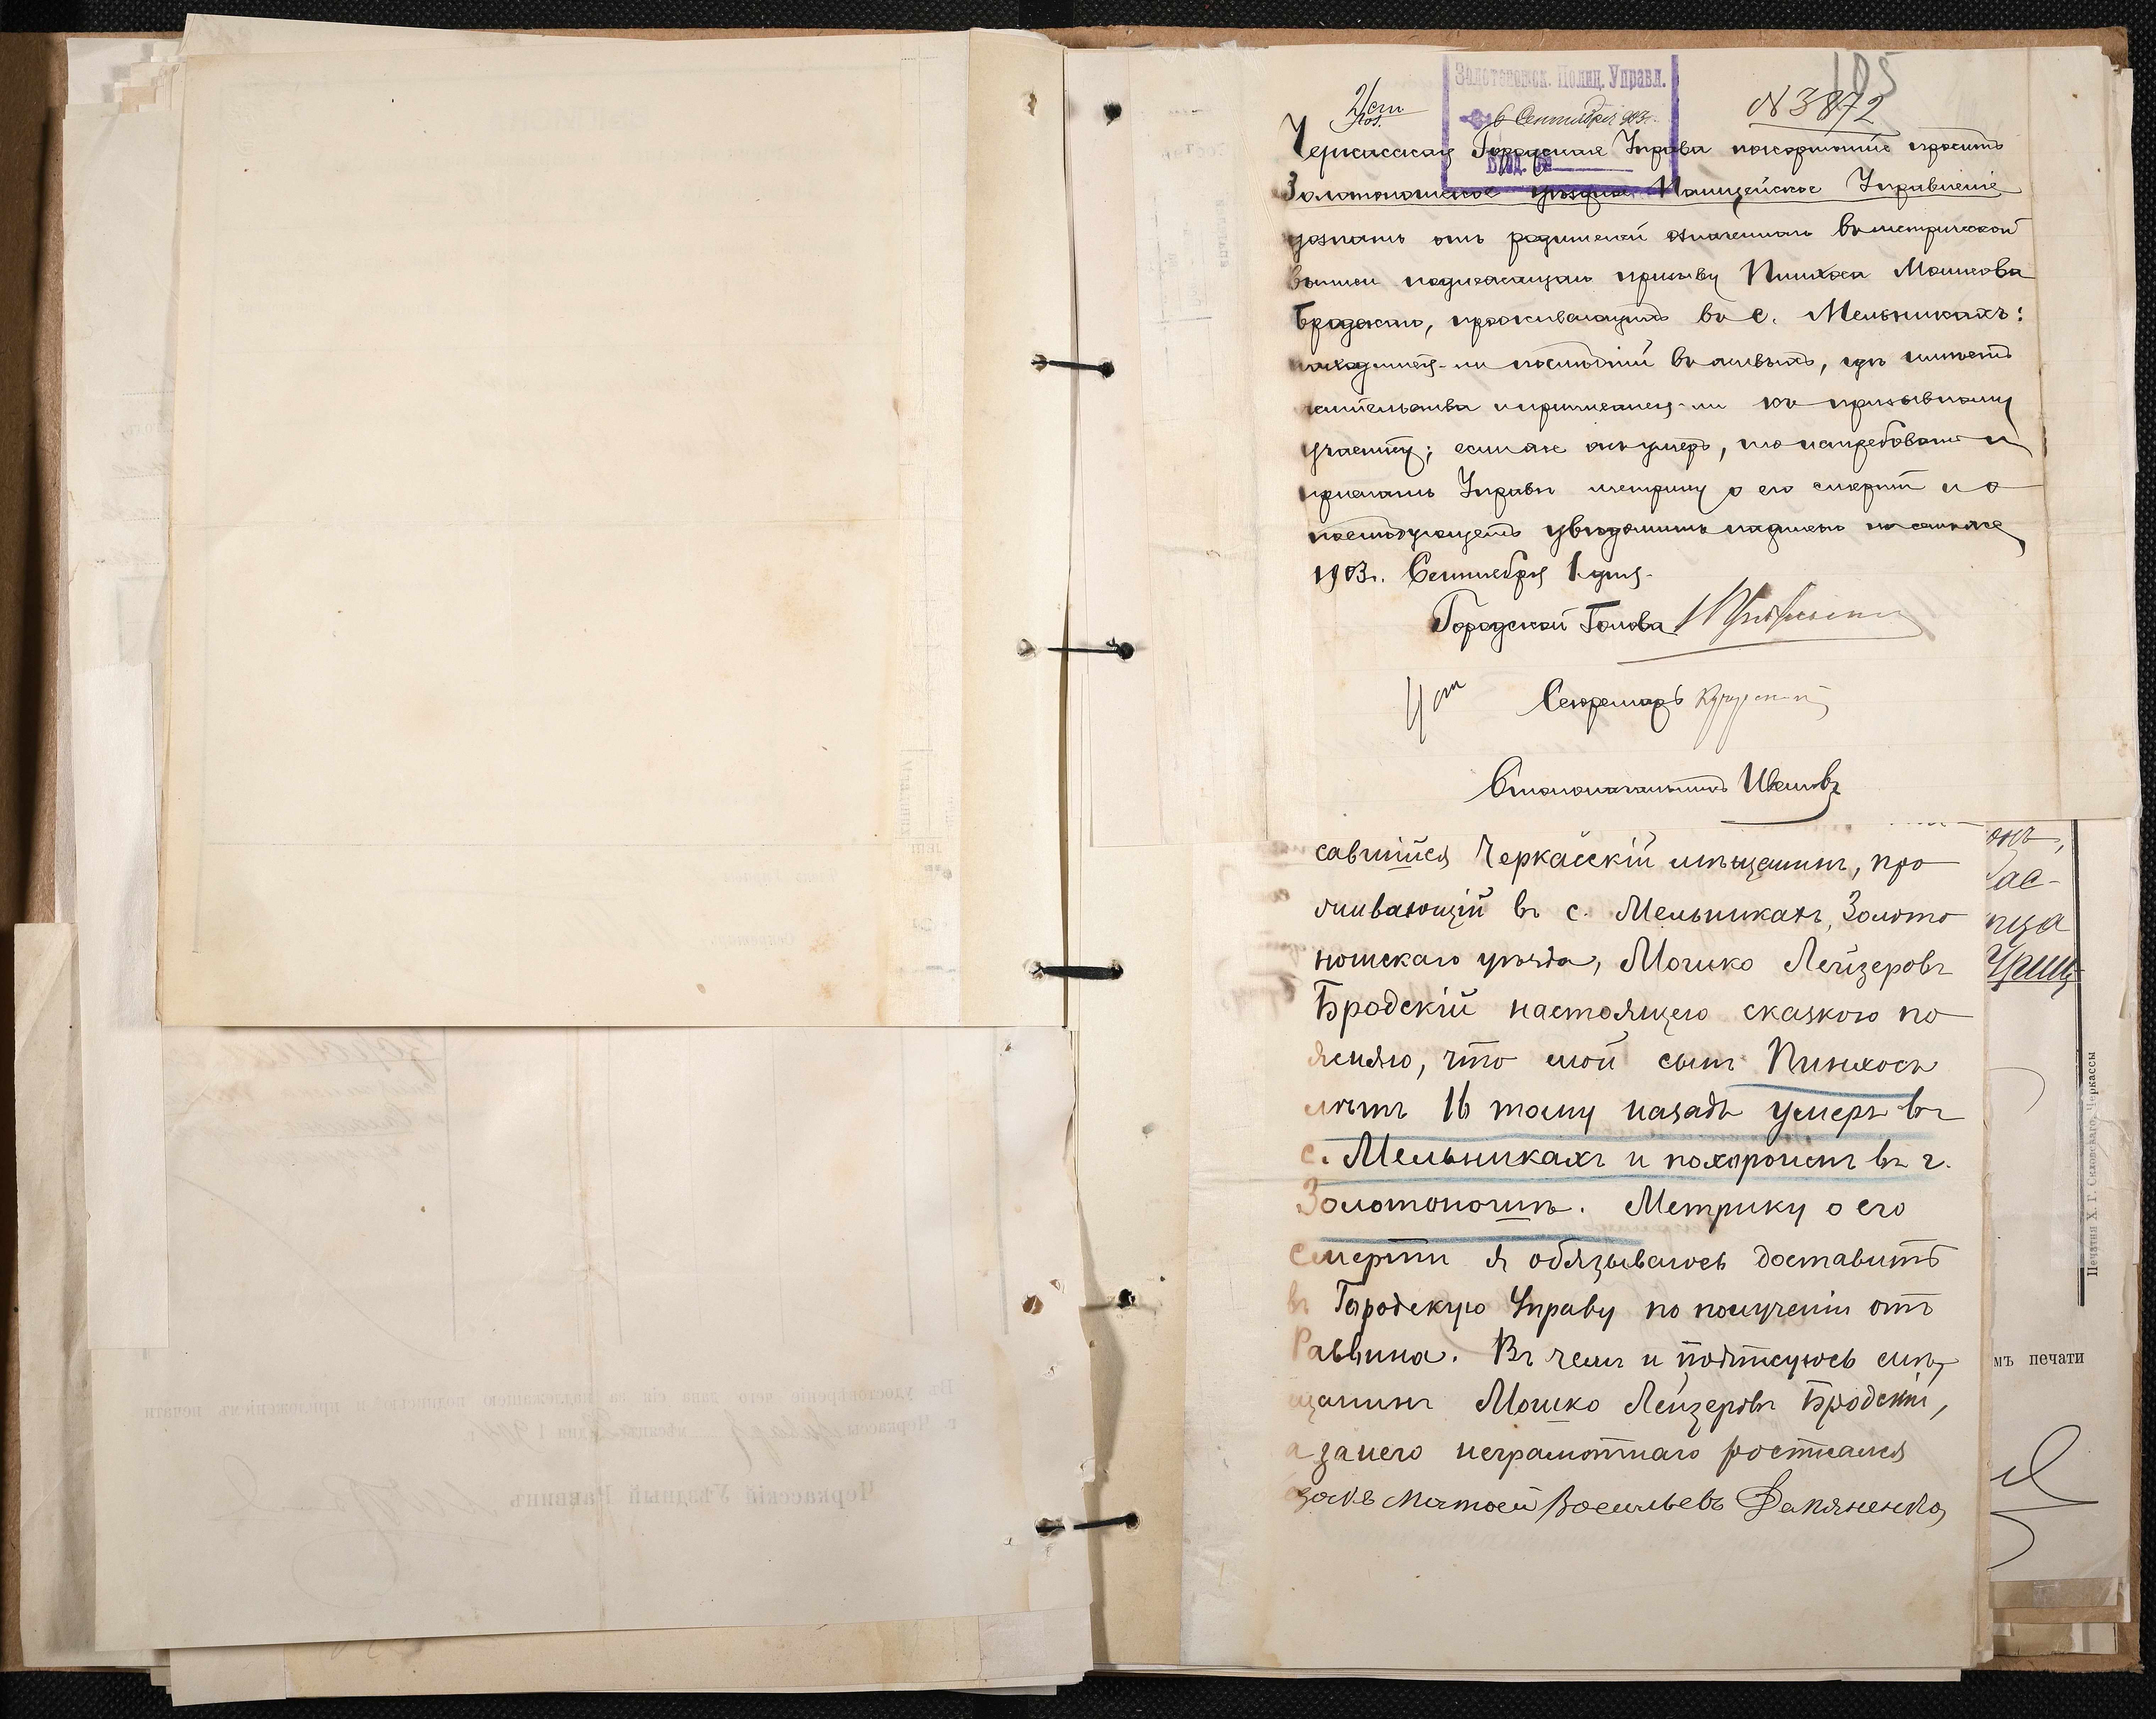 105
2 ст
Золотоношск. Полиц. Управл.
6 Сентября 903.
Вход. №
№ 3872
Черкасская Городская Управа покорнѣйше проситъ
Золотоношское уѣздное Полицейское Управленіе
дознать отъ родителей означеннаго въ метрической
выписи подлежащаго призыву Пинхоса Мошкова
Бродскаго, проживающихъ въ с. Мельникахъ:
находится-ли послѣдній въ живыхъ, гдѣ имѣетъ
жительства и приписанъ-ли къ призывному
участку; если же онъ умеръ, то истребовать и
прислать Управѣ метрику о его смерти и о
послѣдующемъ увѣдомить надписью на семъ же
1903 г. Сентября 1 дня.
Городской Голова
4 ст
Секретарь
Столоначальникъ Ивановъ
савшійся Черкасскій мѣщанинъ, про
живающій въ с. Мельникахъ, Золото
ношскаго уѣзда, Мошко Лейзеровъ
Бродскій настоящею сказкою по
ясняю, что мой сынъ Пинхосъ
лѣтъ 16 тому назадъ умеръ въ
с. Мельникахъ и похороненъ въ г.
Золотоношѣ. Метрику о его
смерти я обязываюсь доставить
въ Городскую Управу по полученіи отъ
Раввина. Въ чемъ и подписуюсь мѣ
щанинъ Мошко Лейзеровъ Бродскій,
а за него неграмотнаго росписался
Васильевъ Демяненко
онъ,
мъ печати
Печатня Х. Г. Скловскаго, Черкассы
Въ удостовѣреніе чего дана сія за надлежащею подписью и приложеніемъ печати
г. Черкассы мѣсяца дня 190 г.
Черкасскій Уѣздный Раввинъ